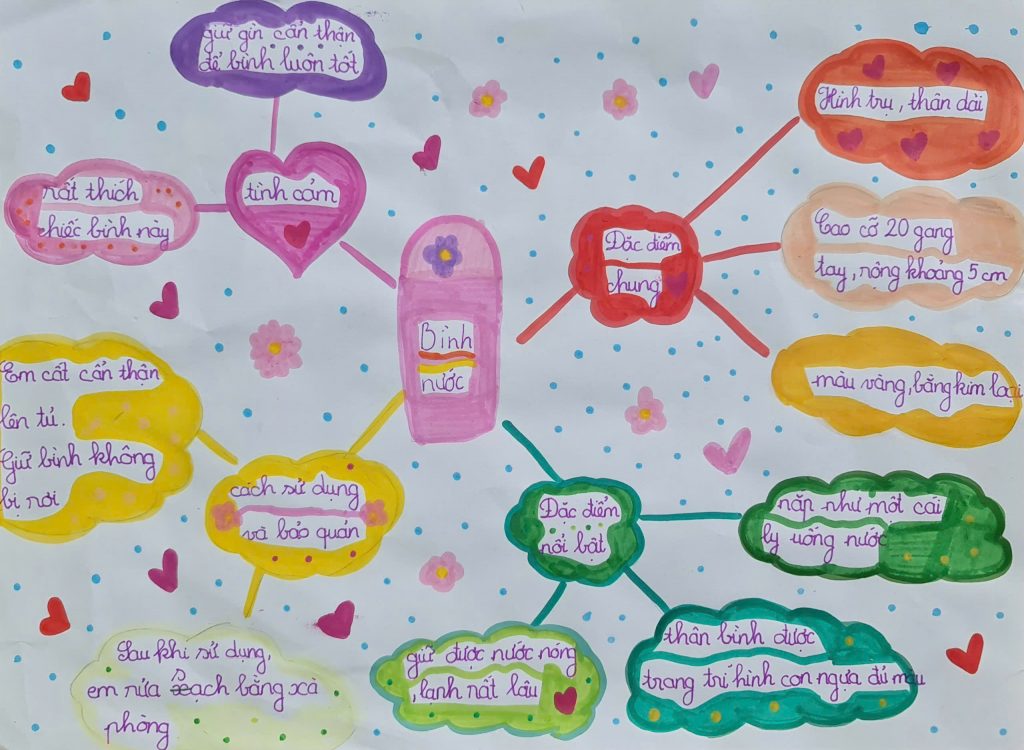 giữ gìn cẩn thận
để bình luôn tốt
rất thích
chiếc bình này
tình cảm
Bình
nước
Đặc điểm
chung
Hình trụ, thân dài
Cao cỡ 20 gang
tay, rộng khoảng 5 cm
màu vàng, bằng kim loại
Em cất cẩn thận
lên tủ.
Giữ bình không
bị rơi
cách sử dụng
và bảo quản
Sau khi sử dụng,
em rửa sạch bằng xà
phòng
Đặc điểm
nổi bật
nắp như một cái
ly uống nước
giữ được nước nóng
, lạnh rất lâu
thân bình được
trang trí hình con ngựa đủ màu